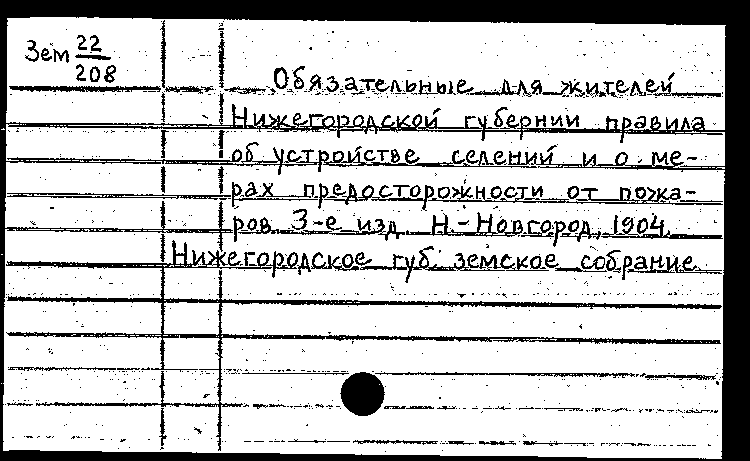 Зем 22/208
Обязательные для жителей
Нижегородской губернии правила
об устройстве селений и о ме-
рах предосторожности от пожа-
ров. 3-е изд. Н.-Новгород, 1904.
Нижегородское губ. земское собрание